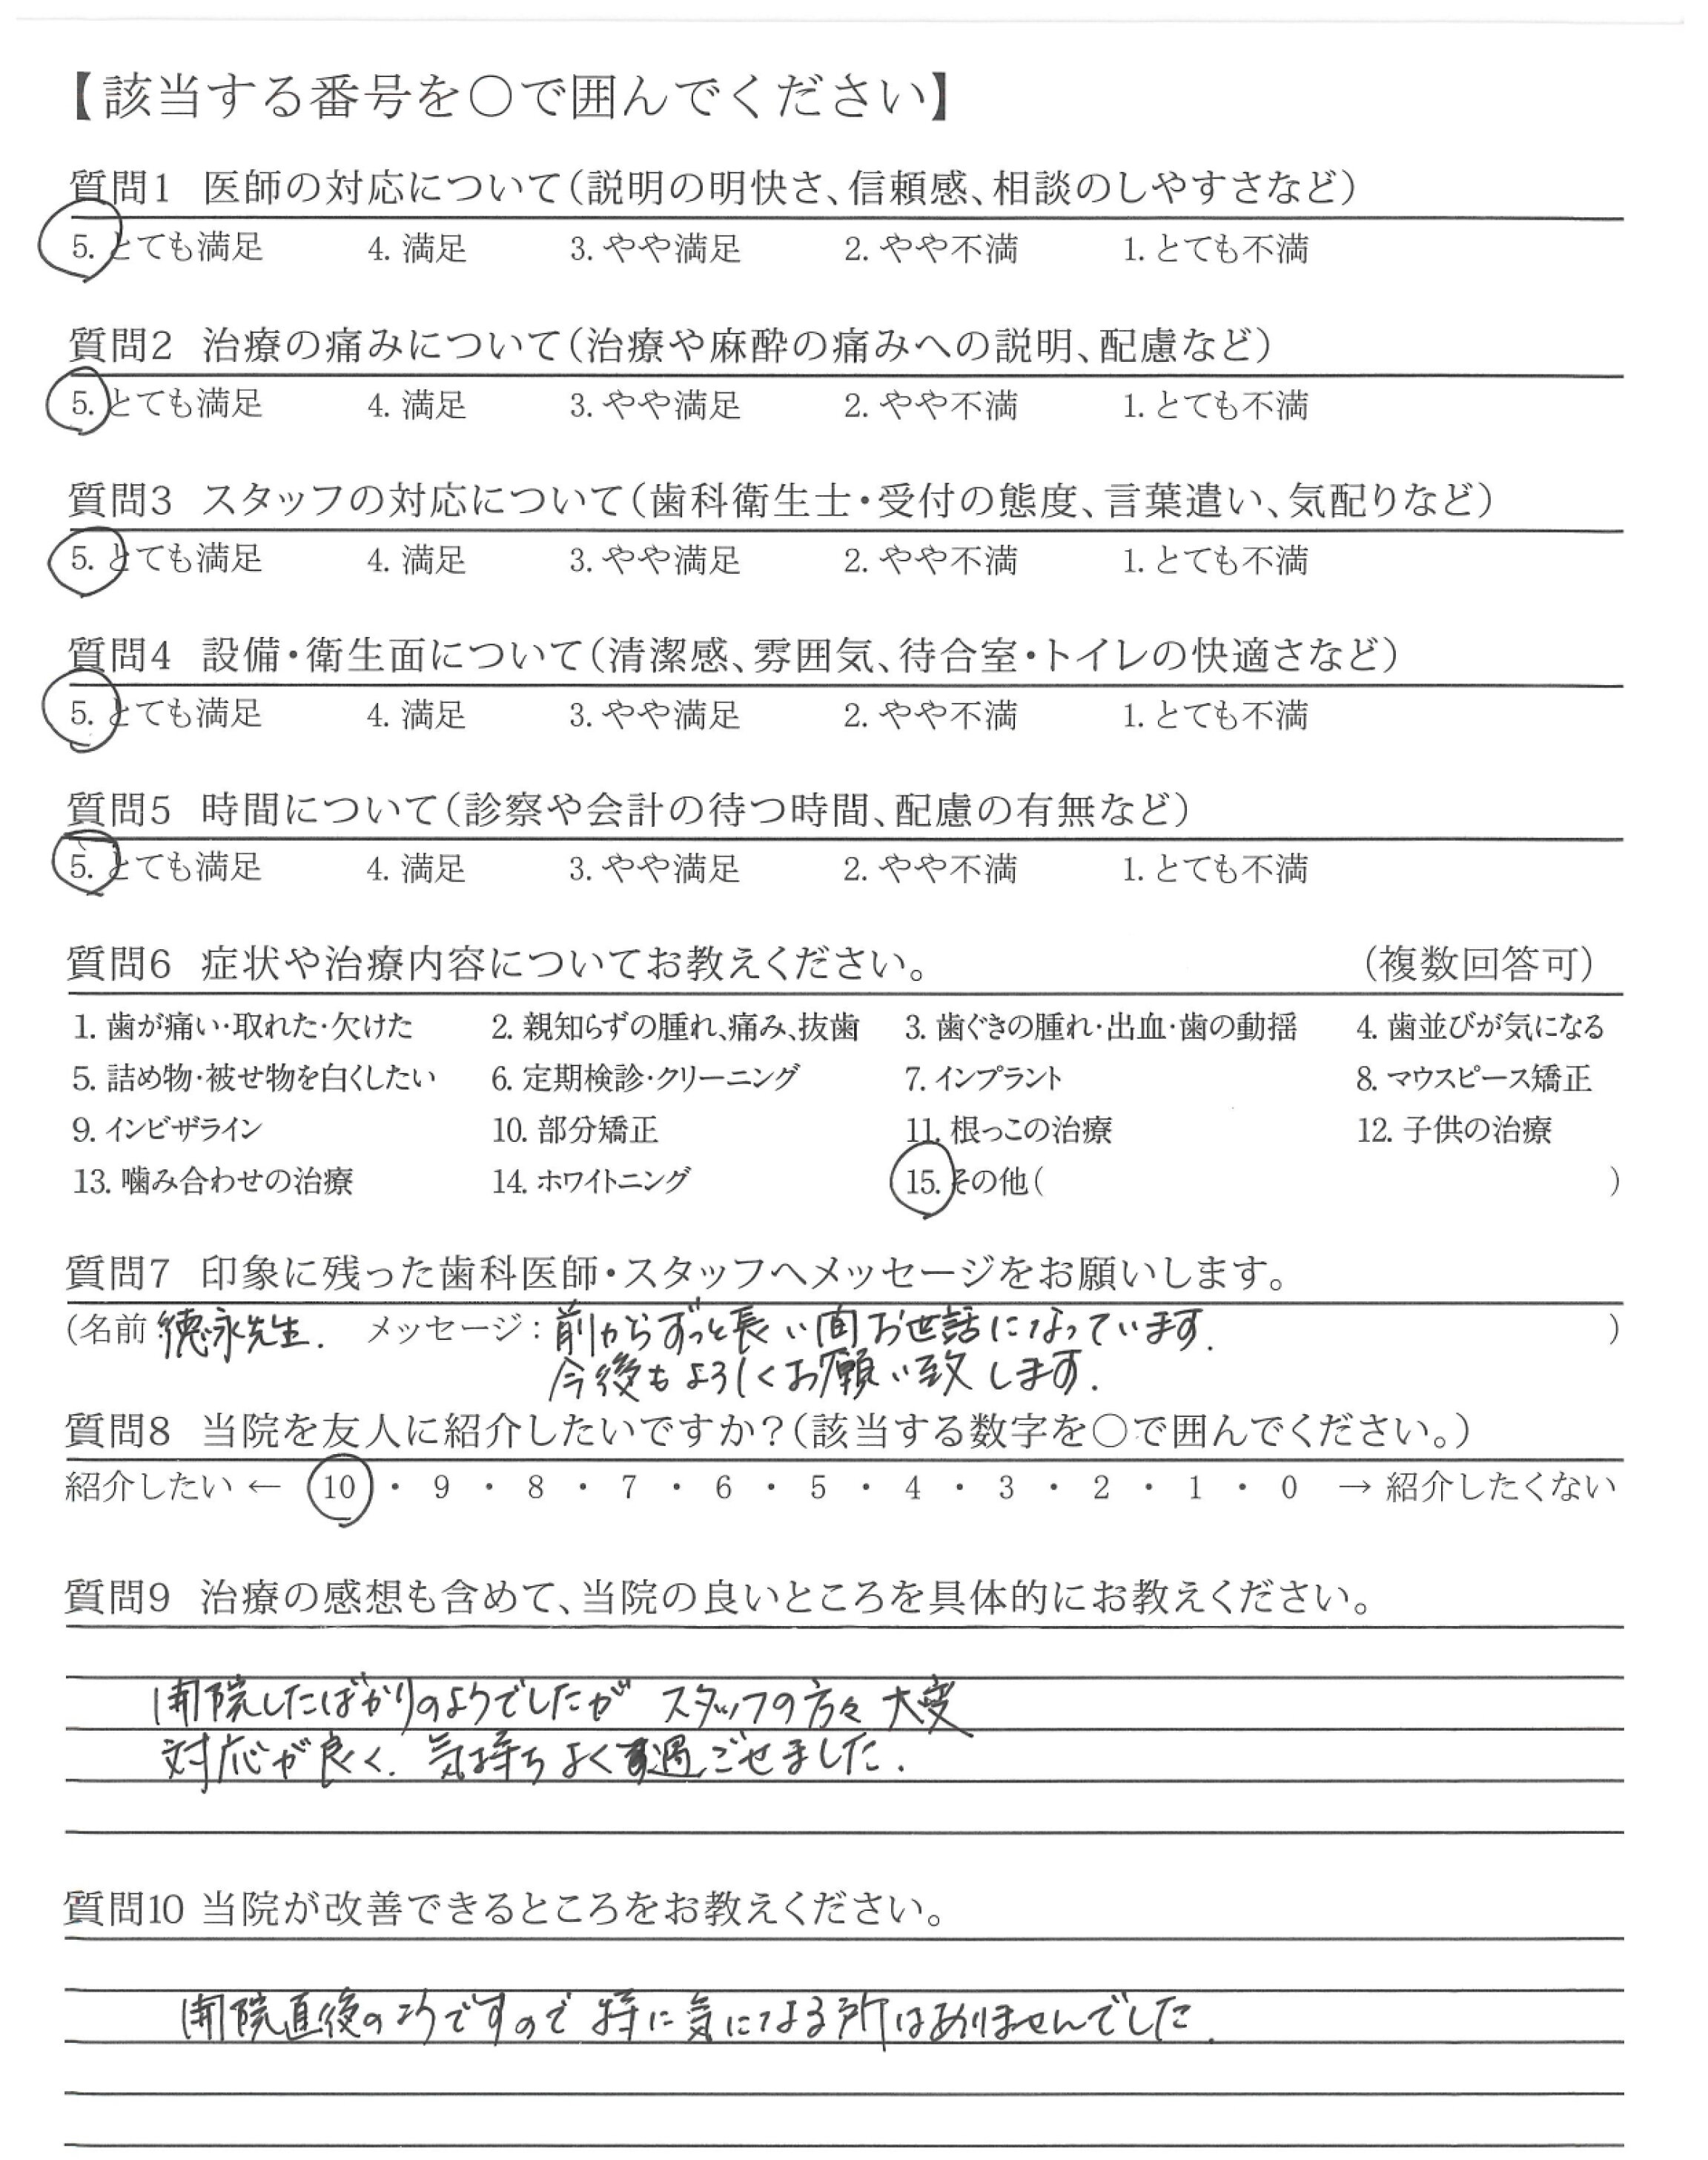 【該当する番号を○で囲んでください】
質問1 医師の対応について(説明の明快さ、信頼感、相談のしやすさなど)
5. とても満足 4. 満足 3. やや満足 2. やや不満 1. とても不満
質問2 治療の痛みについて(治療や麻酔の痛みへの説明、配慮など)
5. とても満足 4. 満足 3. やや満足 2. やや不満 1. とても不満
質問3 スタッフの対応について(歯科衛生士・受付の態度、言葉遣い、気配りなど)
5. とても満足 4. 満足 3. やや満足 2. やや不満 1. とても不満
質問4 設備・衛生面について(清潔感、雰囲気、待合室・トイレの快適さなど)
5. とても満足 4. 満足 3. やや満足 2. やや不満 1. とても不満
質問5 時間について(診察や会計の待つ時間、配慮の有無など)
5. とても満足 4. 満足 3. やや満足 2. やや不満 1. とても不満
質問6 症状や治療内容についてお教えください。 (複数回答可)
1. 歯が痛い・取れた・欠けた 2. 親知らずの腫れ、痛み、抜歯 3. 歯ぐきの腫れ・出血・歯の動揺 4. 歯並びが気になる
5. 詰め物・被せ物を白くしたい 6. 定期検診・クリーニング 7. インプラント 8. マウスピース矯正
9. インビザライン 10. 部分矯正 11. 根っこの治療 12. 子供の治療
13. 噛み合わせの治療 14. ホワイトニング 15. その他( )
質問7 印象に残った歯科医師・スタッフへメッセージをお願いします。
(名前 徳永先生. メッセージ: 前からずっと長い間お世話になっています. )
今後もよろしくお願い致します.
質問8 当院を友人に紹介したいですか?(該当する数字を○で囲んでください。)
紹介したい ← 10 ・ 9 ・ 8 ・ 7 ・ 6 ・ 5 ・ 4 ・ 3 ・ 2 ・ 1 ・ 0 → 紹介したくない
質問9 治療の感想も含めて、当院の良いところを具体的にお教えください。
開院したばかりのようでしたが スタッフの方々 大変
対応が良く. 気持ちよく過ごせました.
質問10 当院が改善できるところをお教えください。
開院直後のようですので 特に気になる所はありませんでした.